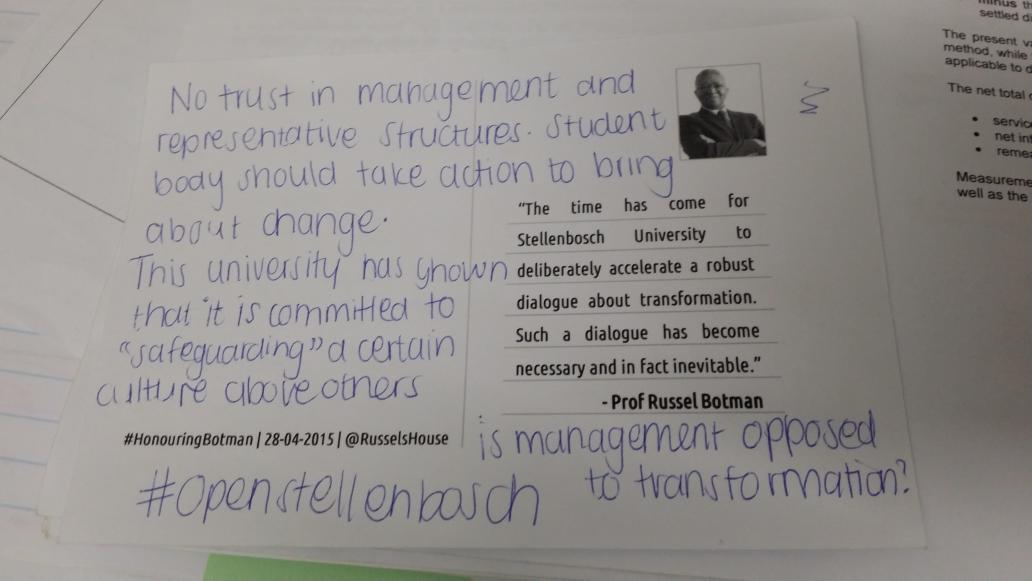 No trust in management and
representative structures. Student
body should take action to bring
about change.
This university has shown
that it is committed to
"safeguarding" a certain
culture above others
"The time has come for
Stellenbosch University to
deliberately accelerate a robust
dialogue about transformation.
Such a dialogue has become
necessary and in fact inevitable."
- Prof Russel Botman
#HonouringBotman | 28-04-2015 | @RusselsHouse
is management opposed
to transformation?
#Openstellenbosch
settled
The present
method, while
applicable to
The net total
• 
• net
• 
Measureme
well as the